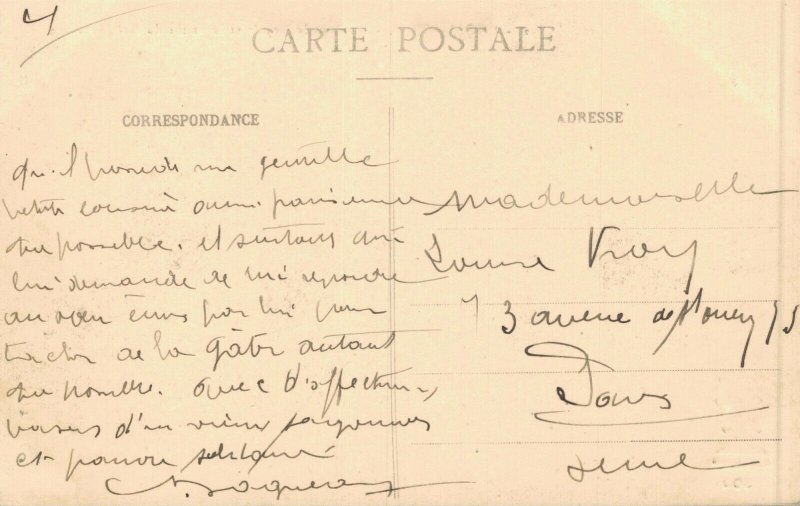 4
CARTE POSTALE
CORRESPONDANCE
ADRESSE
qu'il possede une gentille
petite cousine aussi parisienne
que possible. et surtout
lui demande de lui repondre
par lui pour
tacher de la gâter autant
que possible. avec d'affectueux
baisers d'un vieux
et pauvre solitaire
Mademoiselle
Louise
3 avenue de
Paris
Seine